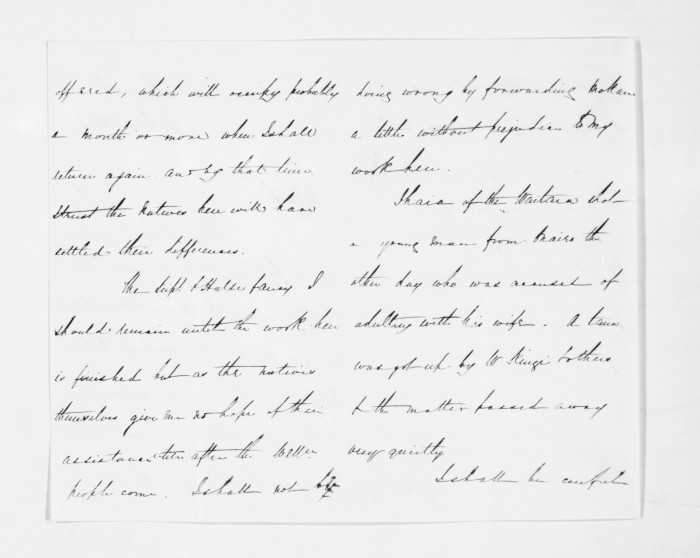 offered, which will occupy probably
a month or more when I shall
return again and by that time
I trust the Natives here will have
settled their differences.
The Supt & Halse fancy I
should remain until the work here
is finished but as the natives
themselves give me no hope of their
assistance till after the
people come. I shall not be
doing wrong by forwarding Mokau
a little without prejudice to my
work here.
Ihaia of the Waitara shot
a young man from the
other day who was accused of
adultery with his wife. A taua
was got up by W Kingi & others
& the matter passed away
very quietly
I shall be careful